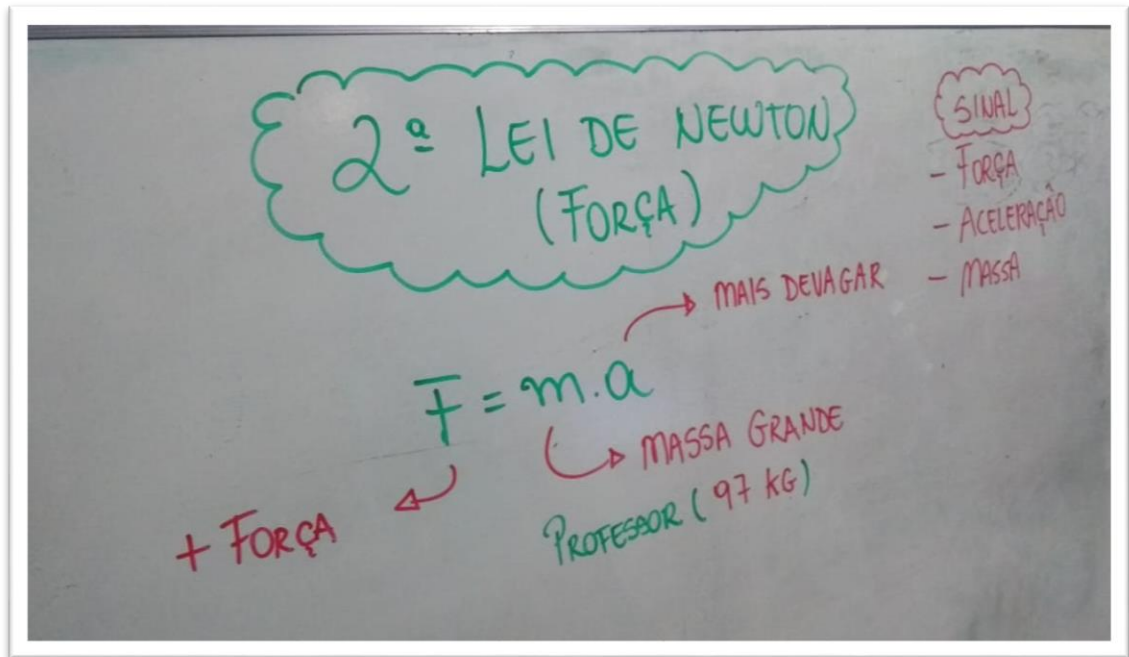 2ª LEI DE NEWTON
(FORÇA)
SINAL
- FORÇA
- ACELERAÇÃO
- MASSA
MAIS DEVAGAR
F = m.a
MASSA GRANDE
PROFESSOR (97 KG)
+ FORÇA